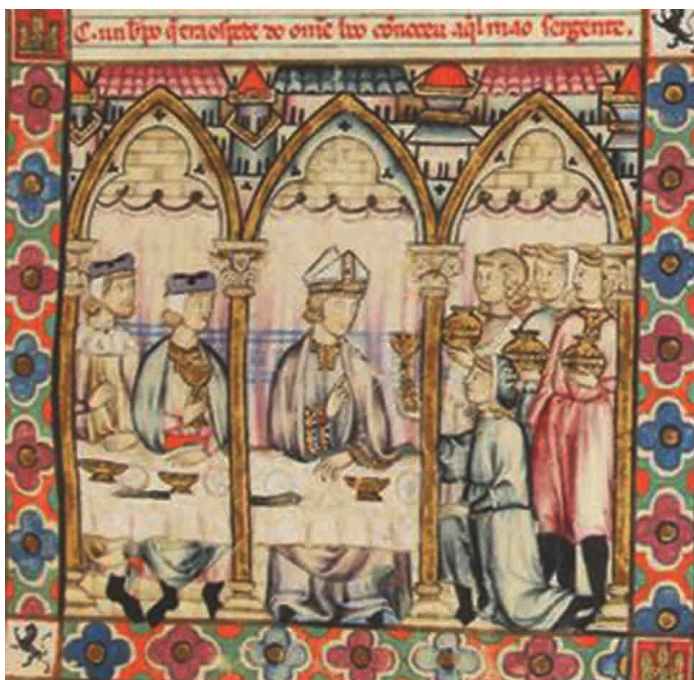 C. un bp̄o q̄ era ospede do om̄e bōo con̄oceu aq̄l mao sergente.